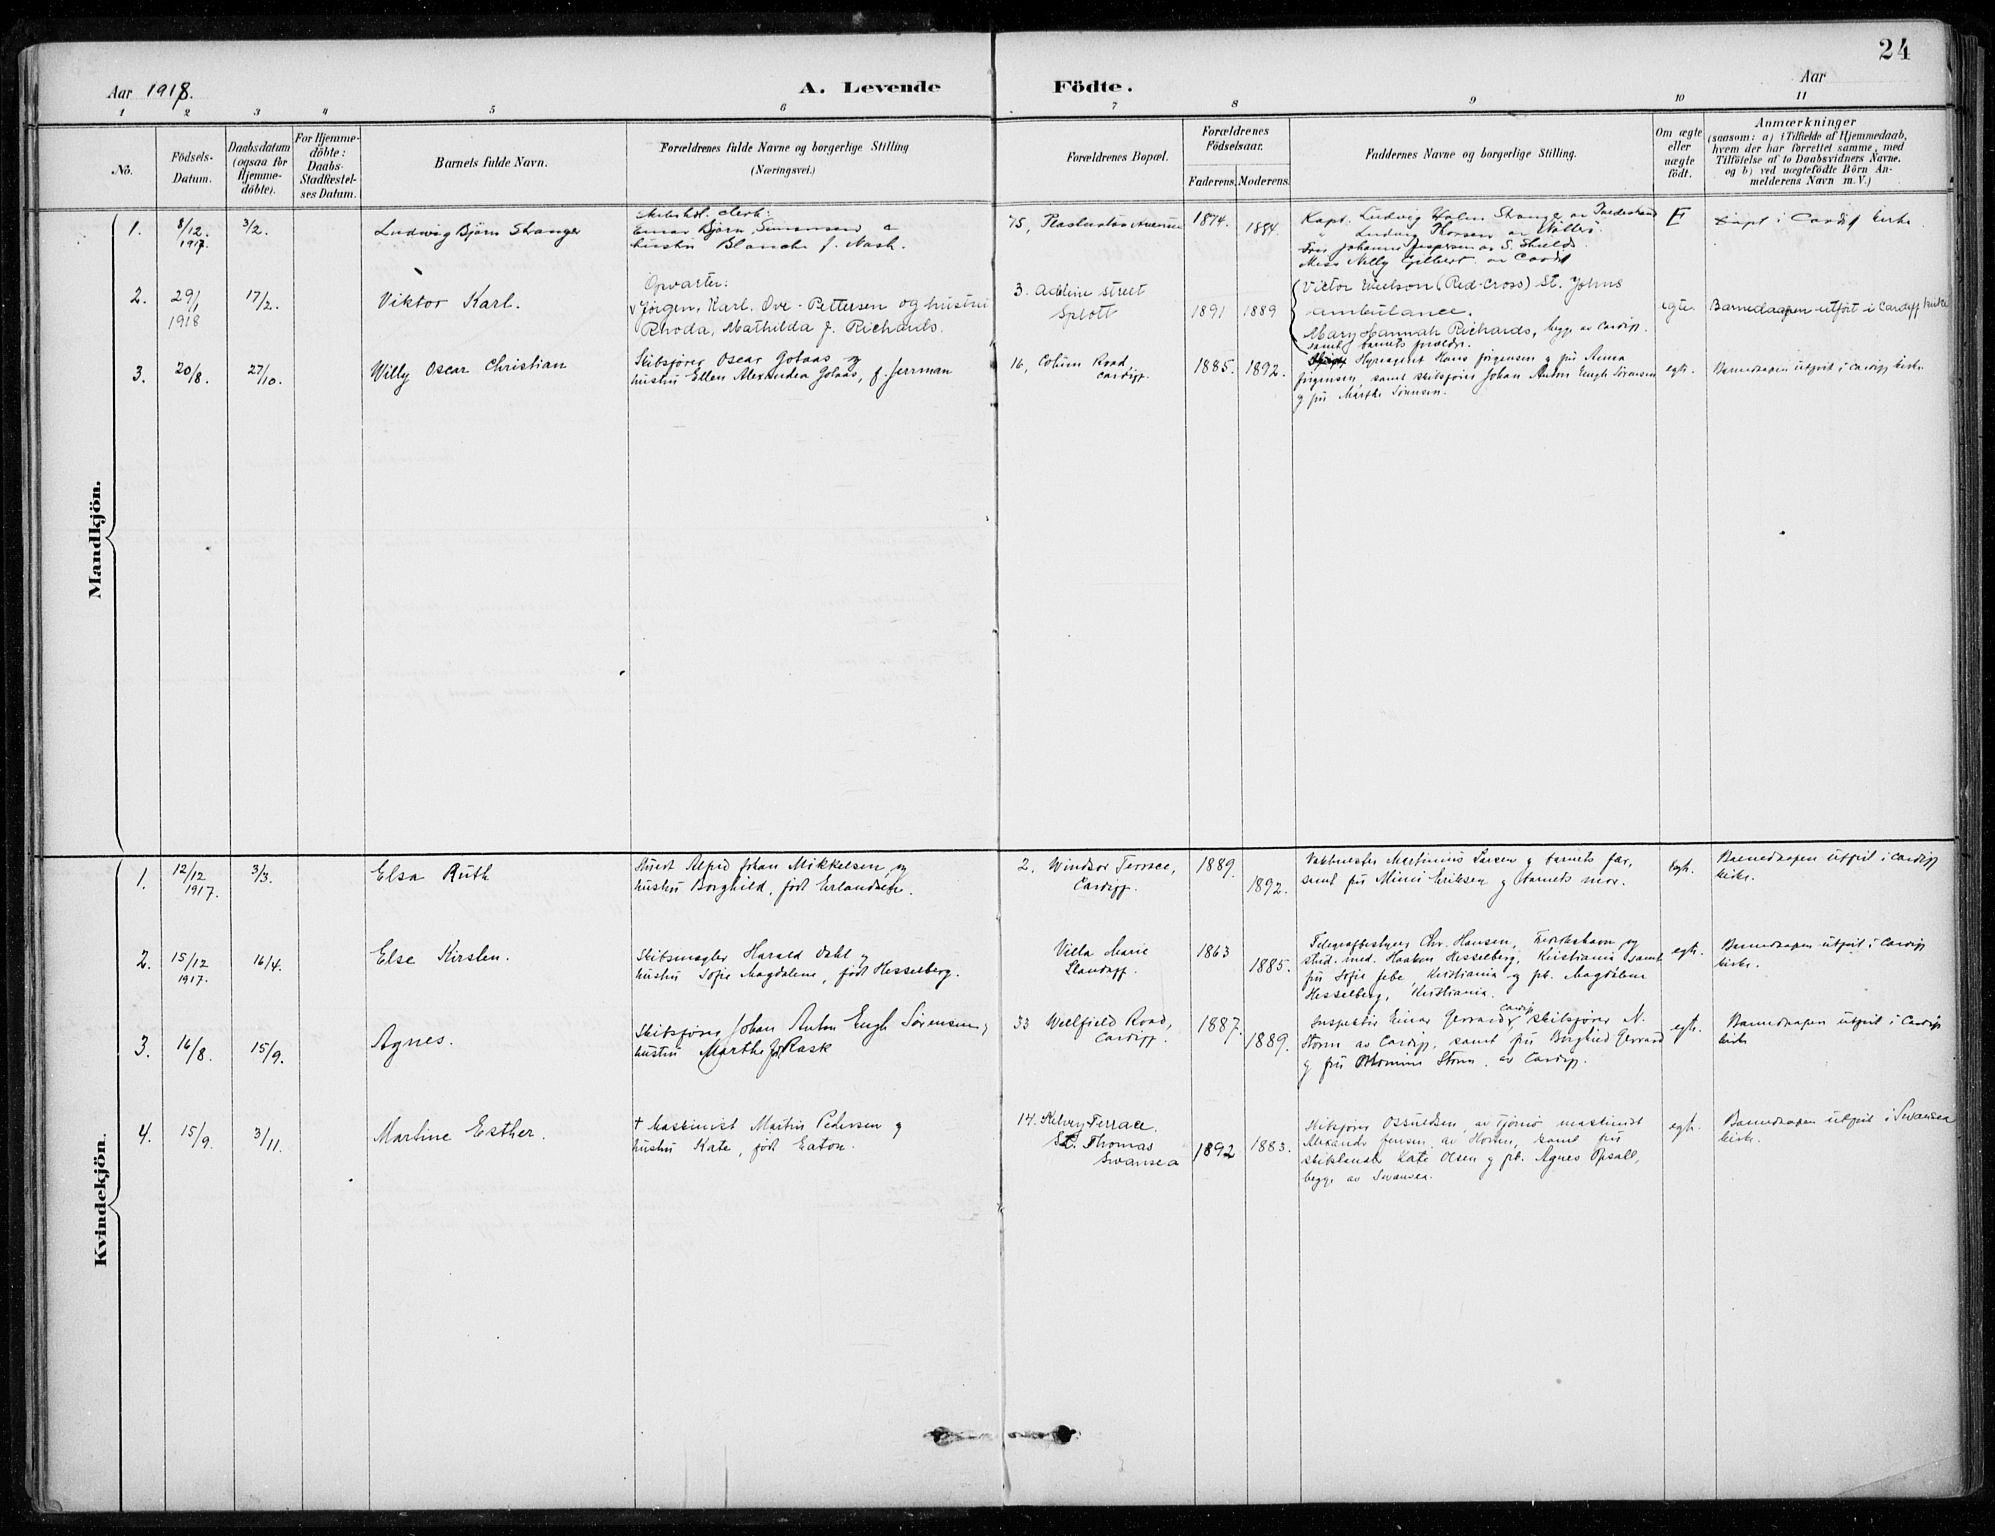 24
Aar 1918.
A. Levende Födte.
Aar
1 2 3 4 5 6 7 8 9 10 11
No.
Födsels-Datum.
Daabsdatum (ogsaa for Hjemmedöbte).
For Hjemmedöbte: Daabs-Stadfæstelses Datum.
Barnets fulde Navn.
Forældrenes fulde Navne og borgerlige Stilling
(Næringsvei.)
Forældrenes Bopæl.
Forældrenes Födselsaar.
Faderens. Moderens.
Faddernes Navne og borgerlige Stilling.
Om ægte eller uægte födt.
Anmærkninger
(saasom: a) i Tilfælde af Hjemmedaab, hvem der har forrettet samme, med Tilföielse af to Daabsvidners Navne. og b) ved uægtefödte Börn Anmelderens Navn m. V.)
Mandkjön.
1.
8/12. 1917.
3/2.
Ludwig Björn Stanger
clerk:
Einar Björn Simonsen
hustru Blanche f. Nash.
75, Avenue
1874.
1884.
Kapt. Ludvig Holm
Ludvig Thorsen
Frø Johanne Jespersen av S. Shields
Miss Nelly Gilbert av Cardif
E
Døpt i Cardif kirke
2.
29/1 1918
17/2.
Viktor Karl.
Opvarter:
Jörgen, Karl. Ove - Pettersen og hustru
Rhoda, Mathilda f. Richards.
3. Adeline street
Splott
1891
1889
Victor Nielson (Red-Cross) St. Johns
ambulance.
Mary Hannah Richards, begge av Cardiff.
samt barnets forældre.
egte
Barnedaapen utført i Cardiff kirke
3.
20/8.
27/10.
Willy Oscar Christian
Skibsfører Oscar Golaas og
hustru Ellen Alexandra Golaas, f. Jerman
16, Colum Road,
Cardiff.
1885.
1892.
Hyreagent Hans Jørgensen og fru Anna
Jørgensen, samt skibsfører Johan Anton Engh Sørensen
og fru Marthe Sørensen.
egte.
Barnedaapen utført i Cardiff kirke.
Kvindekjön.
1.
12/12 1917.
3/3.
Elsa Ruth
Stuert Alfred Johan Mikkelsen og
hustru Borghild, født Erlandsen.
2. Windsor Terrace,
Cardiff.
1889.
1892.
Martinius Larsen og barnets far,
samt fru Mimi Eriksen og barnets mor.
egte.
Barnedaapen utført i Cardiff
kirke.
2.
15/12 1917.
16/4.
Else Kirsten.
Skibsmegler Harald Dahl og
hustru Sofie Magdalene, født Hesselberg.
Villa Marie
Llandaff.
1863
1885.
Telegrafbestyrer Chr. Hansen, og
stud. med. Haakon Hesselberg, Kristiania samt
fru Sofie Jebe, Kristiania og frk. Magdalene
Hesselberg, Kristiania.
egte.
Barnedaapen utført i Cardiff
kirke.
3.
16/8.
15/9.
Agnes.
Skibsfører Johan Anton Engh Sørensen,
hustru Marthe født Rask
33 Wellfield Road,
Cardiff.
1887.
1889.
Inspektør Einar Gerrard, Cardiff, skibsfører N.
Storm av Cardiff, samt fru Borghild Gerrard
og fru Storm, av Cardiff.
egte.
Barnedaapen utført i Cardiff
kirke
4.
15/9.
3/11.
Martine Esther.
† Maskinist Martin Pedersen og
hustru Kate, født Eaton.
14. Terrace.
St. Thomas
Swansea
1892
1883.
Skibsfører av Tjømø maskinist
Alexander Jensen av Horten, samt fru
Kate Olsen og frk. Agnes Opsall,
begge av Swansea.
egte.
Barnedaapen utført i Swansea
kirke.